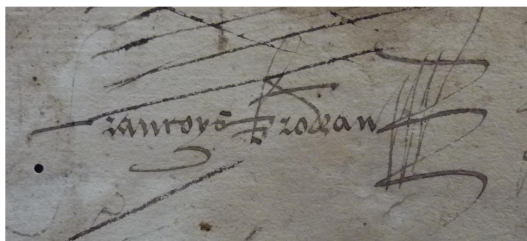 Francoys Brodeau